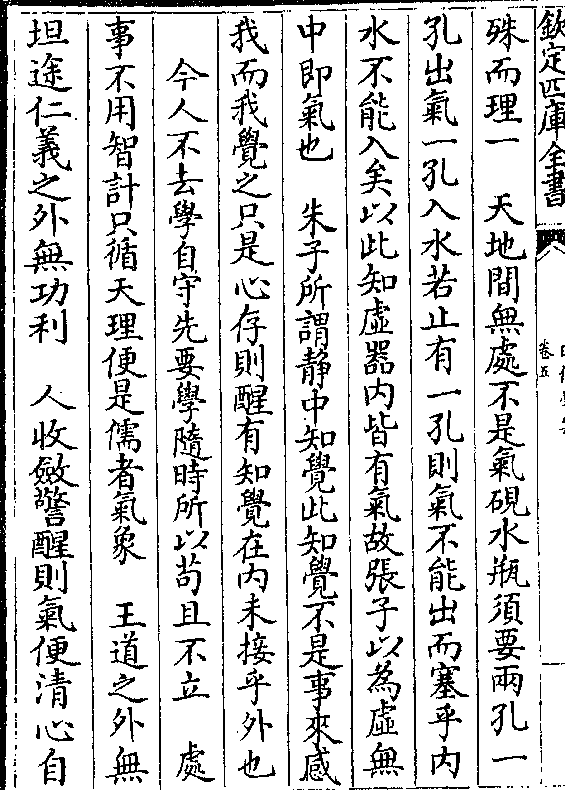 欽定四庫全書
卷五
殊而理一　天地間無處不是氣硯水瓶須要兩孔一
孔出氣一孔入水若止有一孔則氣不能出而塞乎内
水不能入矣以此知虛器内皆有氣故張子以為虛無
中即氣也　朱子所謂静中知覺此知覺不是事來感
我而我覺之只是心存則醒有知覺在内未接乎外也
今人不去學自守先要學隨時所以苟且不立　處
事不用智計只循天理便是儒者氣象　王道之外無
坦途仁義之外無功利　人收斂警醒則氣便清心自